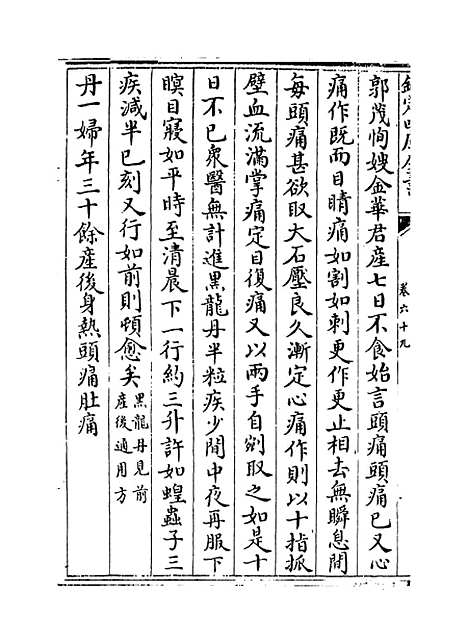 欽定四庫全書
卷六十九
郭茂恂嫂金華君產七日不食始言頭痛頭痛已又心
痛作既而目睛痛如割如刺更作更止相去無瞬息間
每頭痛甚欲取大石壓良久漸定心痛作則以十指抓
壁血流滿掌痛定目復痛又以兩手自剜取之如是十
日不已衆醫無計進黑龍丹半粒疾少間中夜再服下
瞑目寢如平時至清晨下一行約三升許如蝗蟲子三
疾減半已刻又行如前則頓愈矣黑龍丹見前
產後通用方
丹一婦年三十餘產後身熱頭痛肚痛